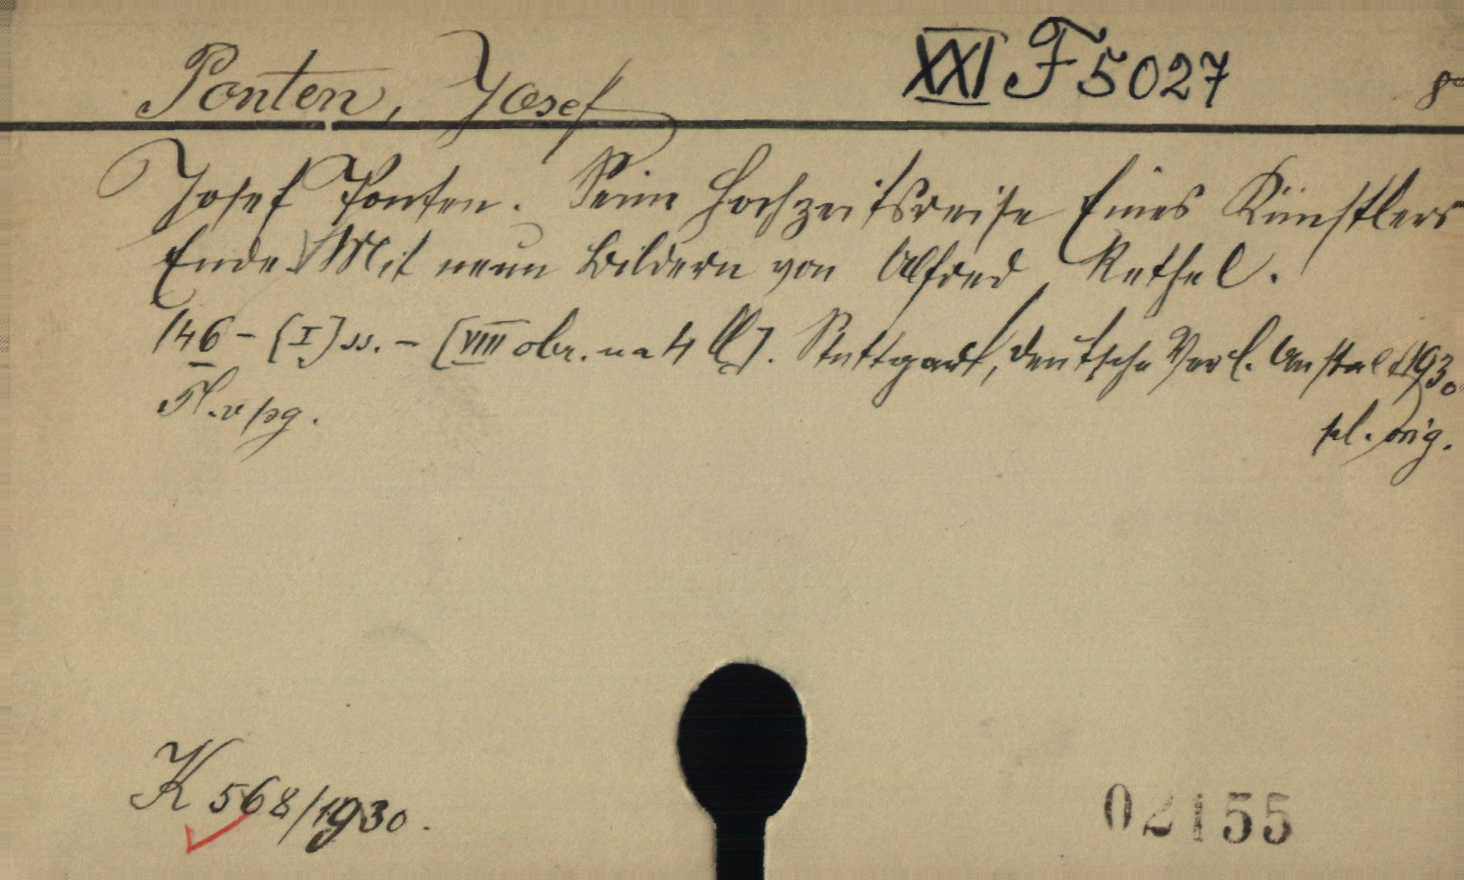 Ponten, Josef XXI F 5027 8°
Josef Ponten. Seine Hochzeitsreise Eines Künstlers
Ende. Mit neun Bildern von Alfred Rethel.
146 - [I] ss. - [VIII obr. na 4 ll]. Stuttgart, Deutsche Verl. Anstalt 1930
pl. orig.
K 568/1930.
02155